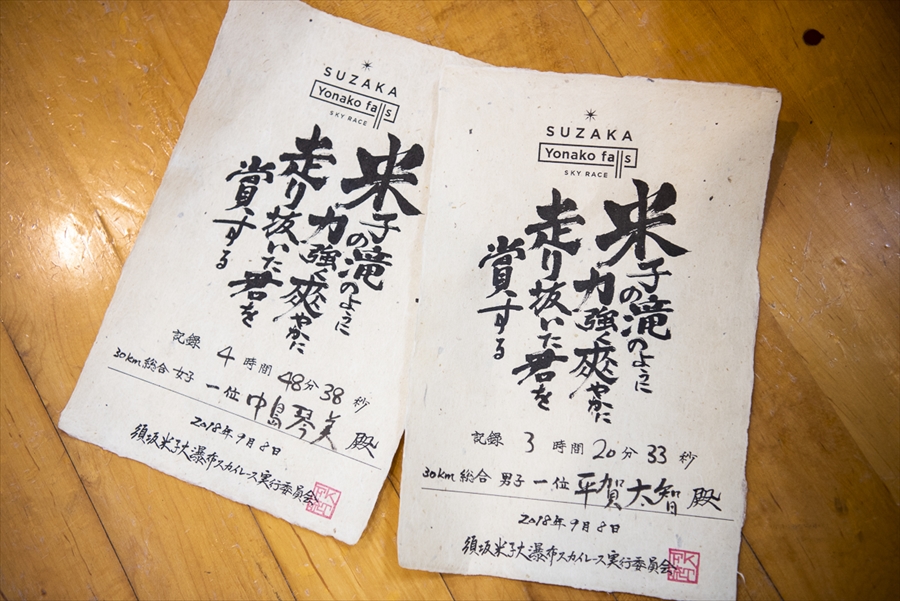 SUZAKA
Yonako falls
SKY RACE
米子の滝のように
力強く爽やかに
走り抜いた君を
賞する
記録 4時間48分38秒
30km総合 女子 一位 中島琴美 殿
2018年9月8日
須坂米子大瀑布スカイレース実行委員会
SUZAKA
Yonako falls
SKY RACE
米子の滝のように
力強く爽やかに
走り抜いた君を
賞する
記録 3時間20分33秒
30km総合 男子 一位 平賀太智 殿
2018年9月8日
須坂米子大瀑布スカイレース実行委員会